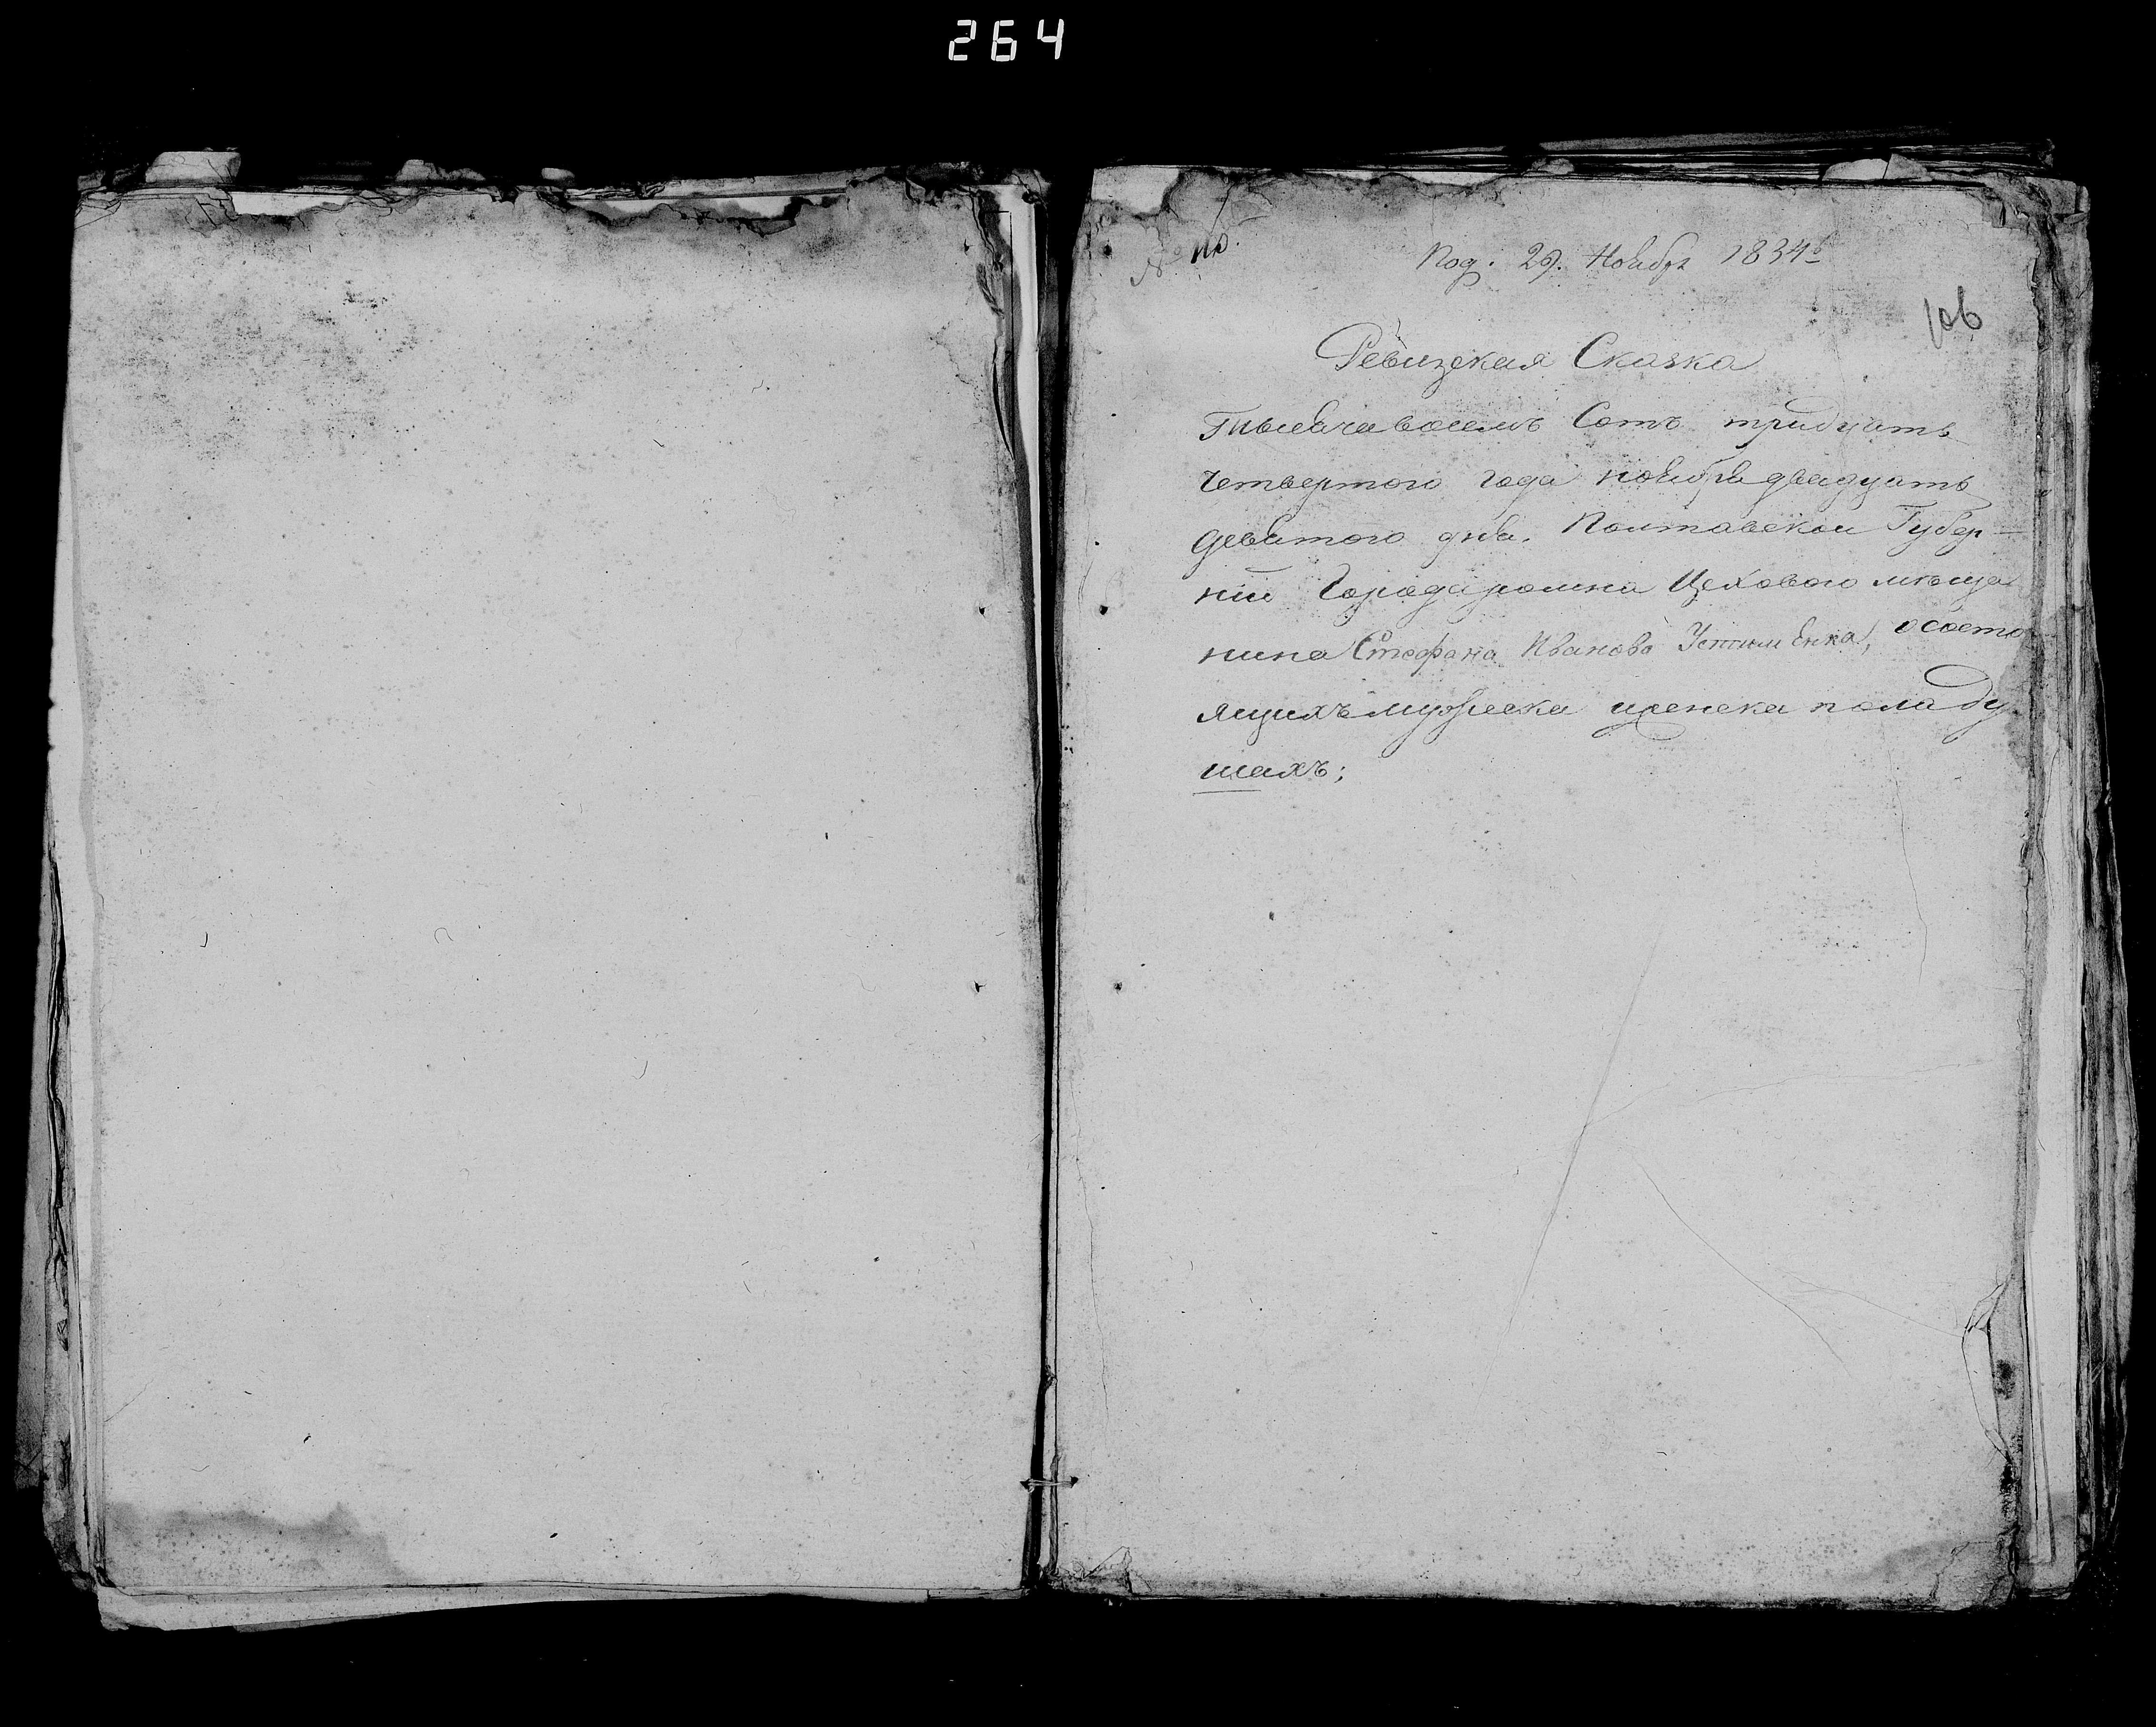 264
№ 110.
Под. 29. Ноября 1834 г
106
Ревизская Сказка
Тысяча восемъ Сотъ тридцать
четвертого года ноября двадцать
девятого дня. Полтавской Губер-
ніи Города ромна Цехового мѣща
нина Стефана Иванова Устименка, о состо
ящихъ мужеска и женска пола ду
шахъ;